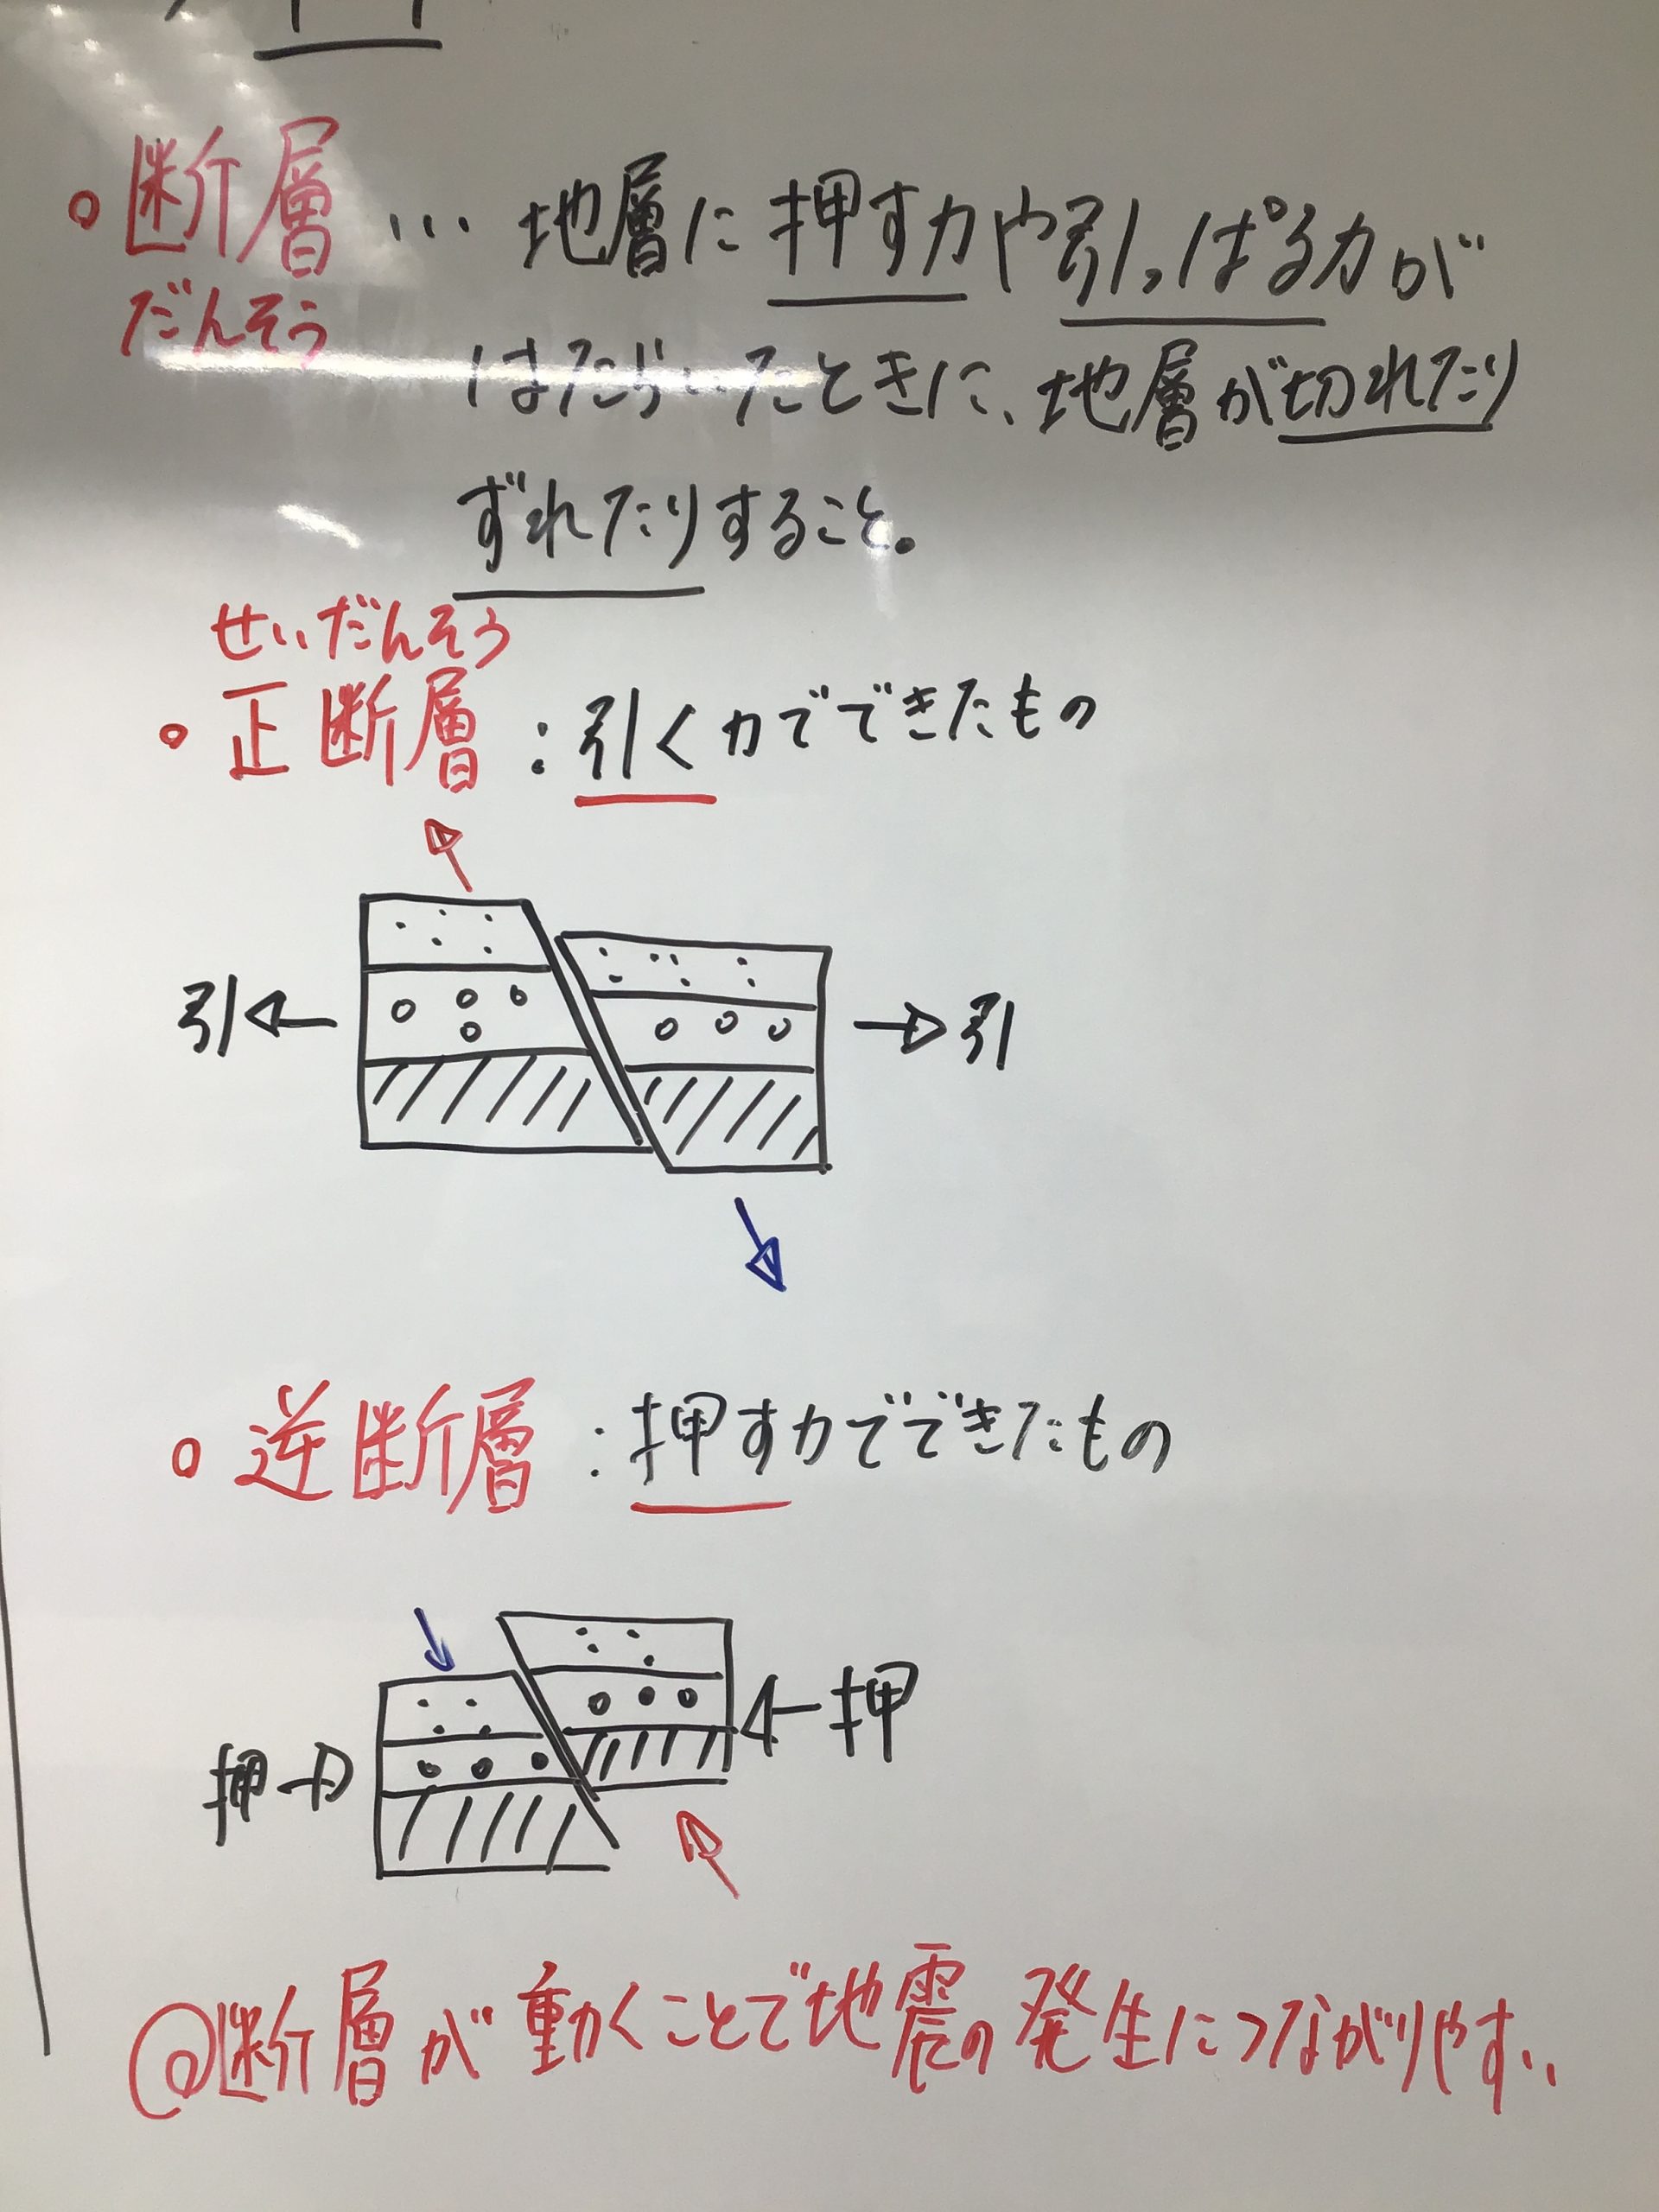 。断層 … 地層に押す力や引っぱる力が
だんそう
はたらいたときに、地層が切れたり
ずれたりすること。
せいだんそう
。正断層：引く力でできたもの
引 引
。逆断層：押す力でできたもの
押
押
◎断層が動くことで地震の発生につながりやすい